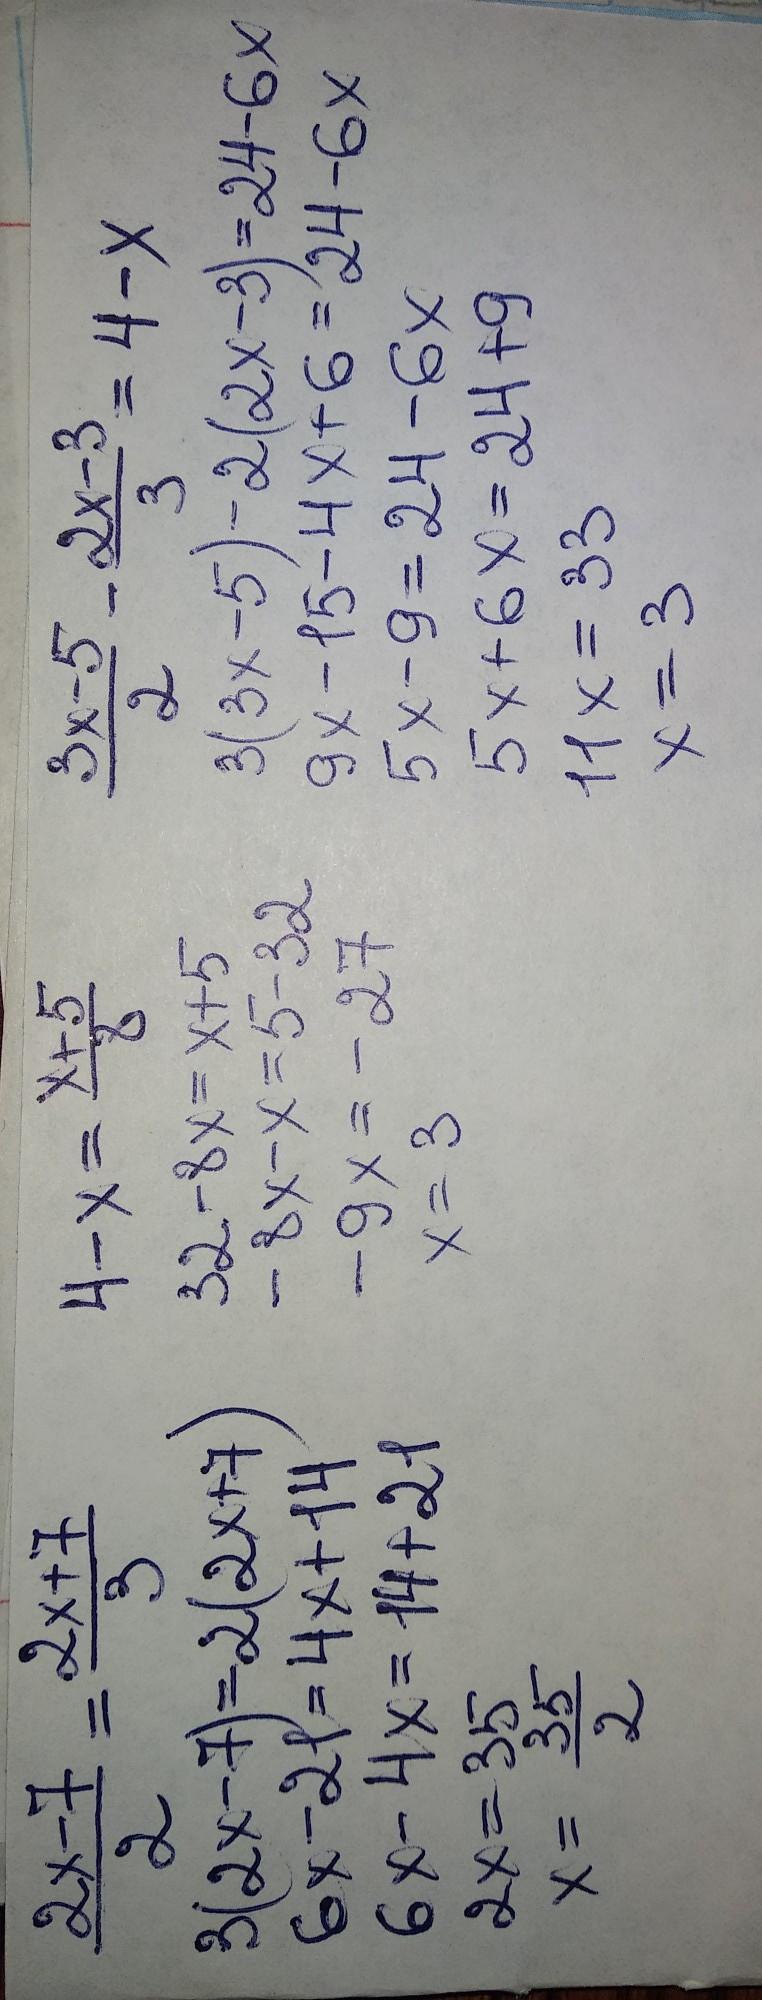 2x-7/2 = 2x+7/3
3(2x-7)=2(2x+7)
6x-21=4x+14
6x-4x=14+21
2x=35
x=35/2
4-x=x+5/8
32-8x=x+5
-8x-x=5-32
-9x=-27
x=3
3x-5/2 - 2x-3/3 = 4-x
3(3x-5)-2(2x-3)=24-6x
9x-15-4x+6=24-6x
5x-9=24-6x
5x+6x=24+9
11x=33
x=3